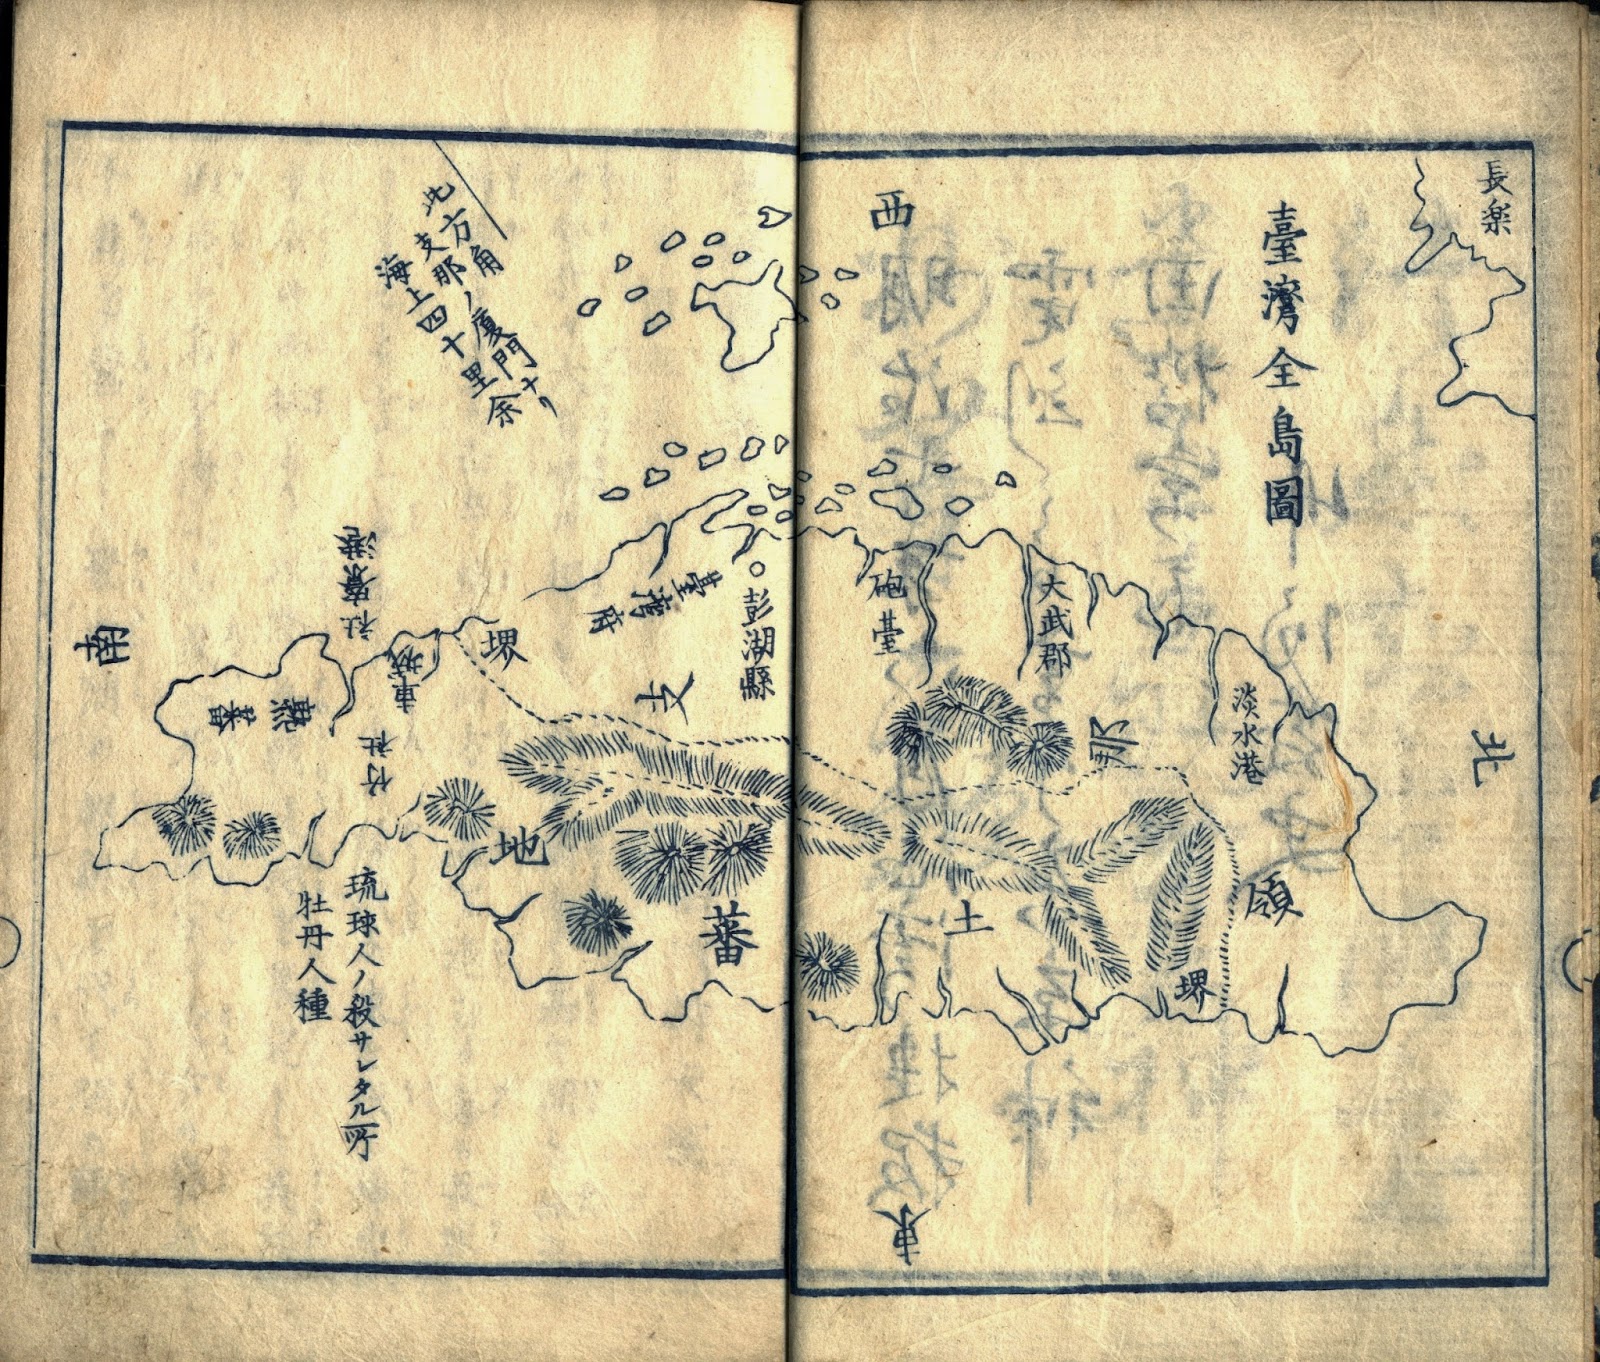 長楽
臺灣全島圖
西
北
東
南
此方角
支那ノ厦門ナリ
海上四十里余
淡水港
大武郡
砲臺
彭湖縣
臺灣府
堺
支
那
領
堺
土
蕃
地
社寮港
車城
竹社
熟蕃
琉球人ノ殺サレタル所
牡丹人種